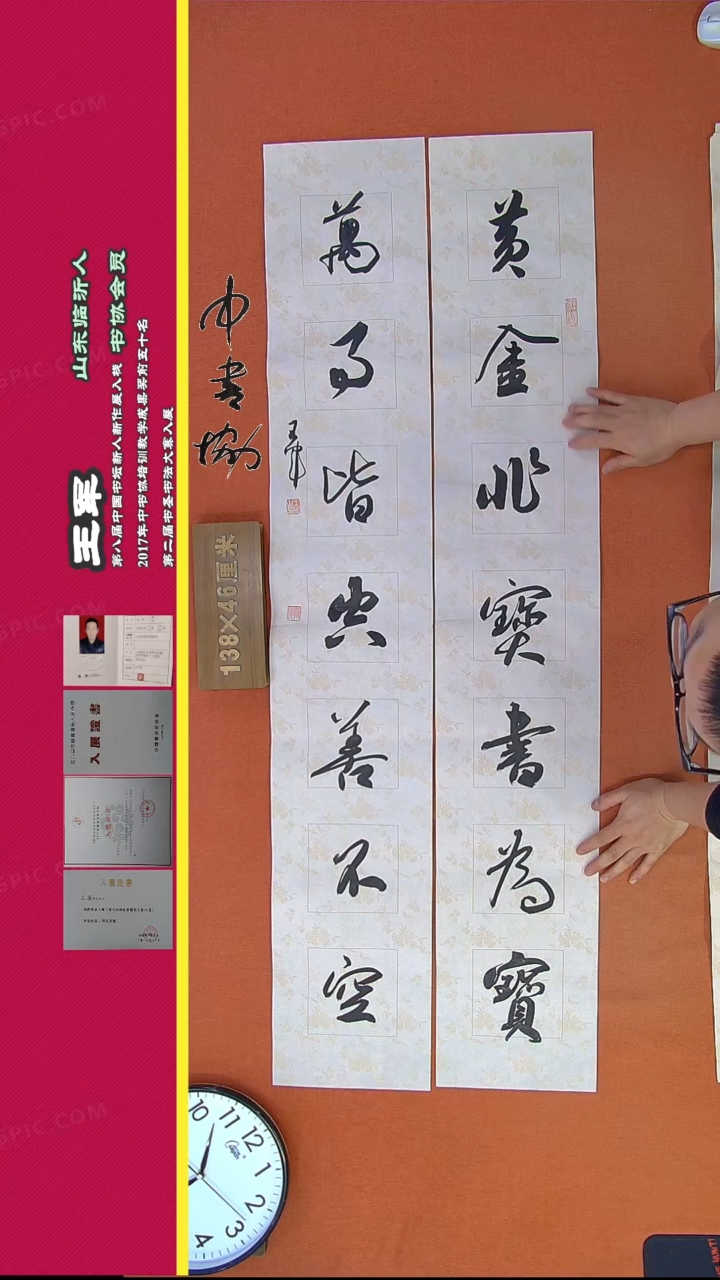 黄金非寶書為寶
萬事皆空善不空
王军
中书协
138×46厘米
王军
山东临沂人
书协会员
第八届中国书坛新人新作展入展
2017年中书协培训教学成果奖前五十名
第二届书圣书法大赛入展
入展證書
入展證書
10 11 12 1 2 4